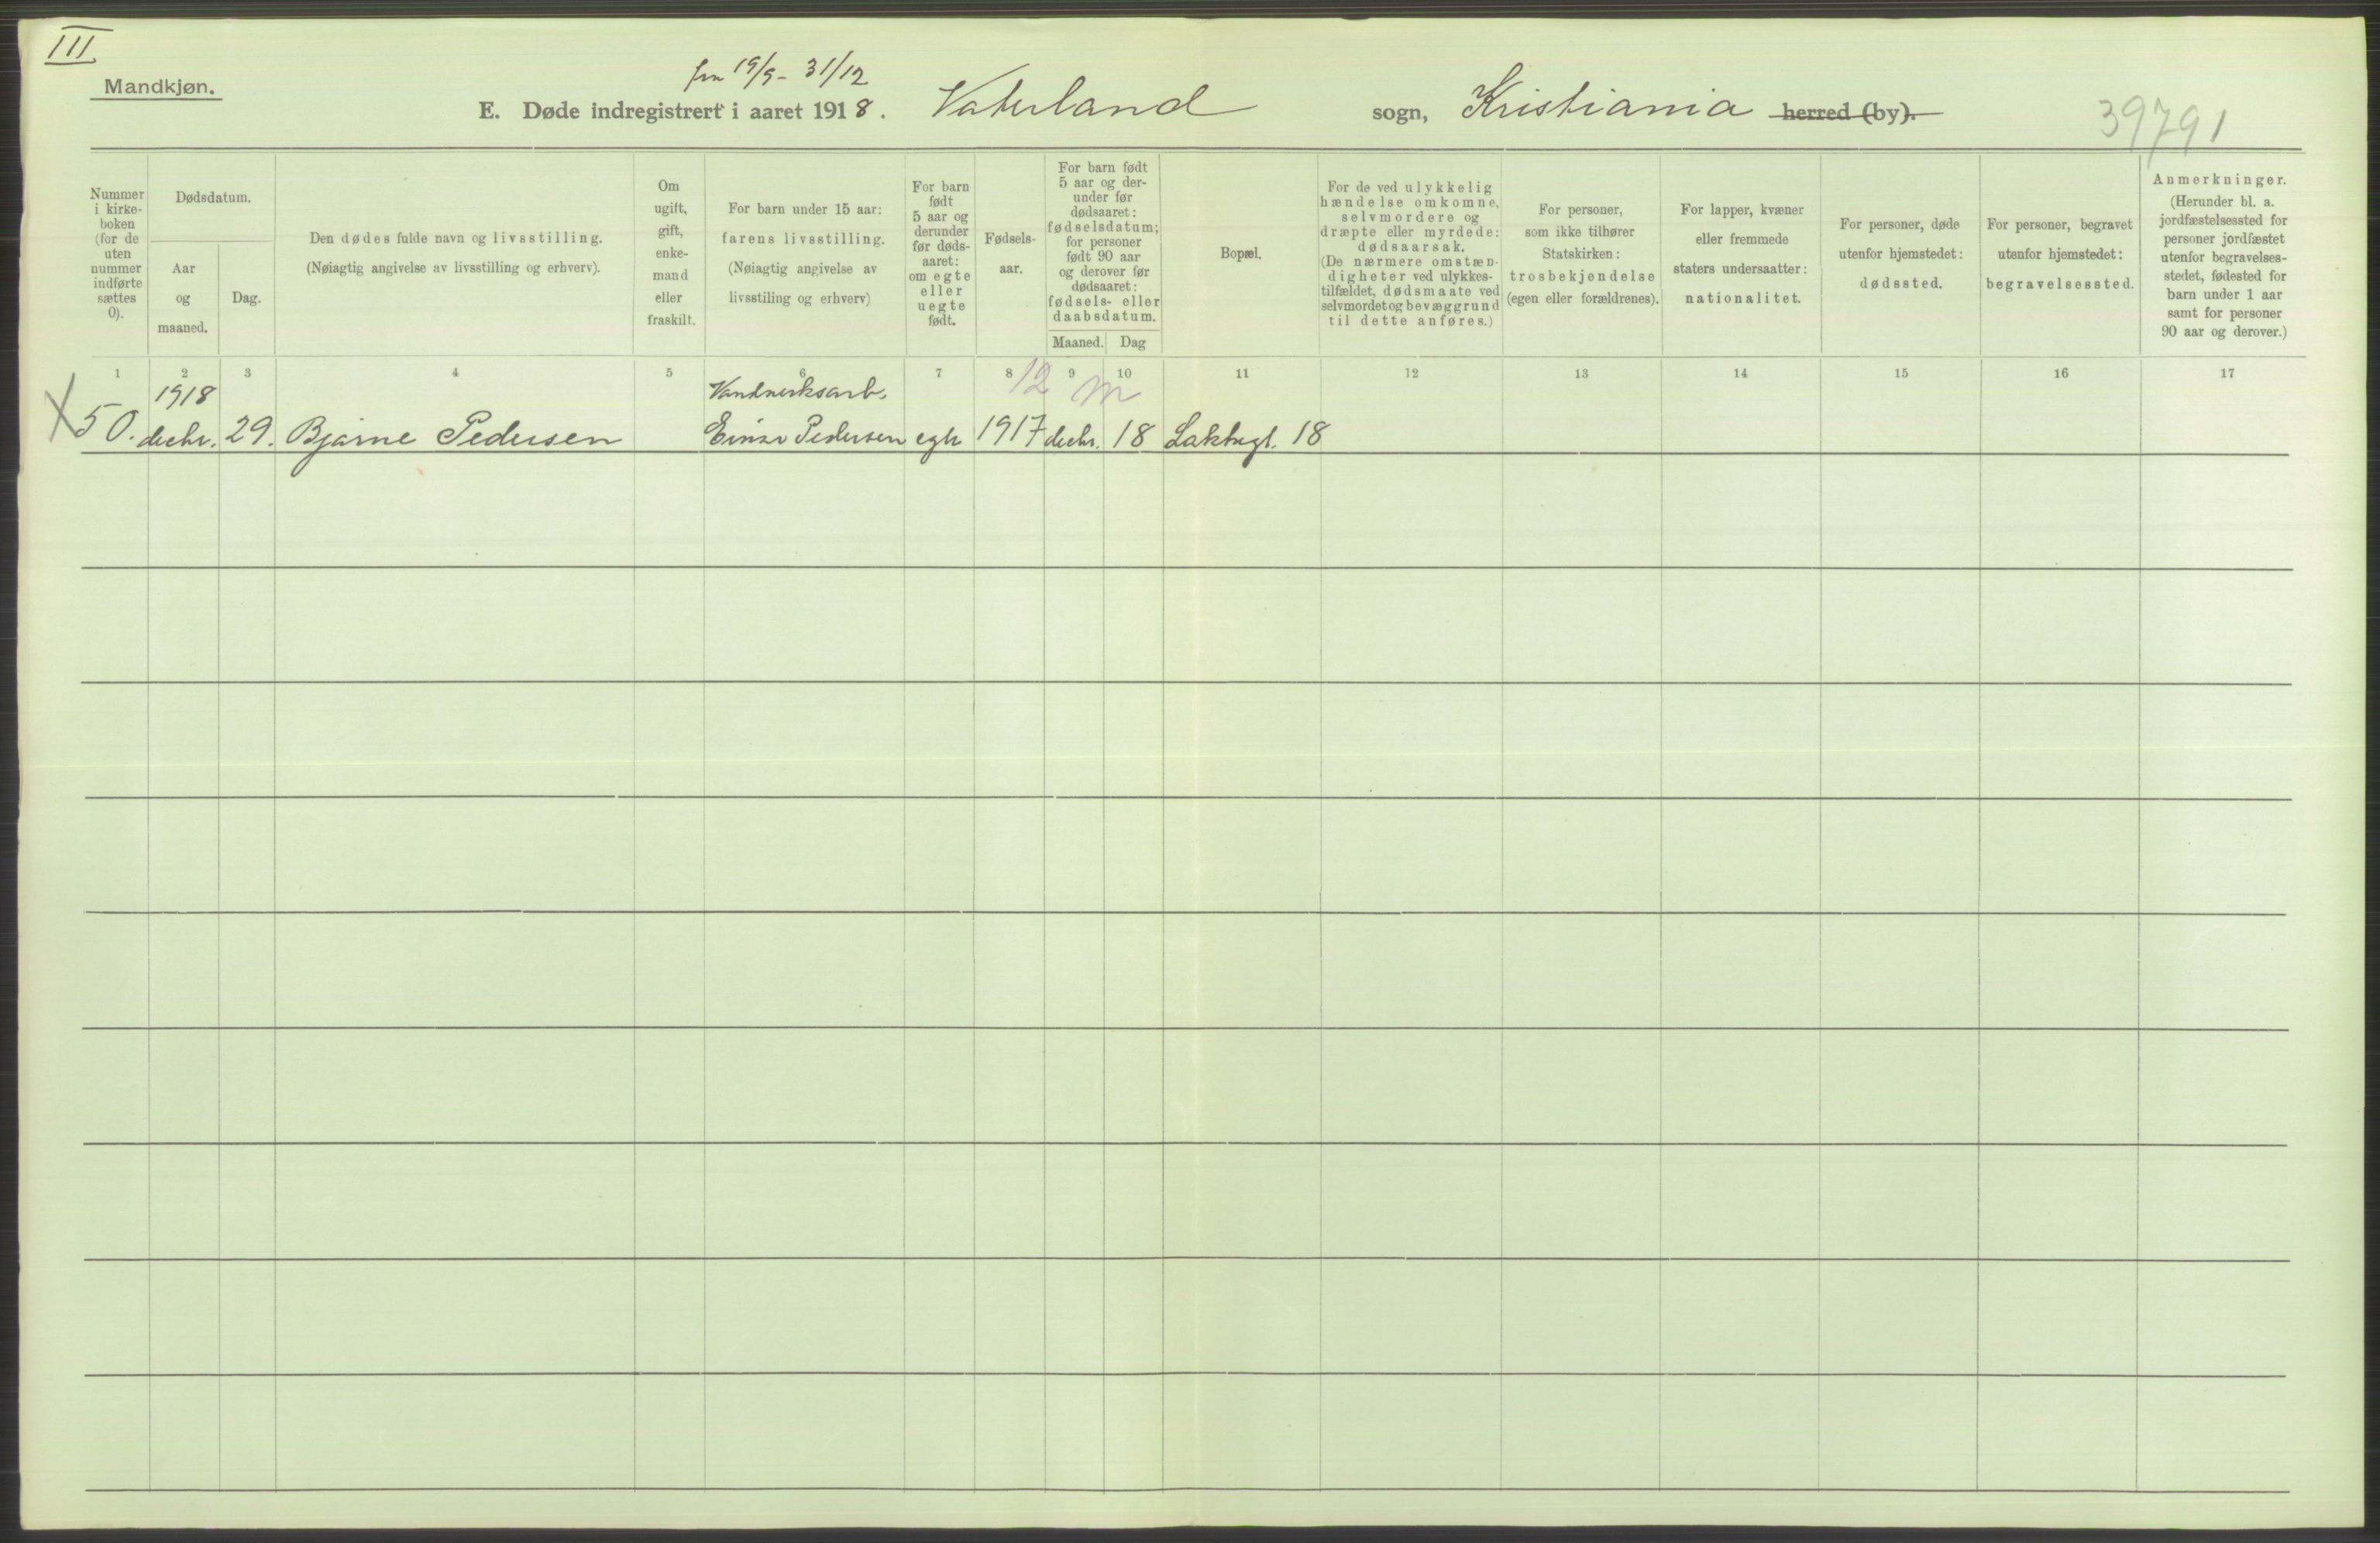 III
Mandkjøn.
fra 19/9 - 31/12
E. Døde indregistrert i aaret 1918. Vaterland sogn, Kristiania herred (by).
39791
Nummer i kirke-boken (for de uten nummer indførte sættes 0).
Dødsdatum.
Aar og maaned.
Dag.
Den dødes fulde navn og livsstilling.
(Nøiagtig angivelse av livsstilling og erhverv).
Om ugift, gift, enke-mand eller fraskilt.
For barn under 15 aar:
farens livsstilling.
(Nøiagtig angivelse av
livsstiling og erhverv)
For barn født 5 aar og derunder før døds-aaret: om egte eller uegte født.
Fødsels-aar.
For barn født 5 aar og der-under før dødsaaret: fødselsdatum; for personer født 90 aar og derover før dødsaaret: fødsels- eller daabsdatum.
Maaned. Dag
Bopæl.
For de ved ulykkelig hændelse omkomne, selvmordere og dræpte eller myrdede: dødsaarsak. (De nærmere omstæn-digheter ved ulykkes-tilfældet, dødsmaate ved selvmordet og bevæggrund til dette anføres.)
For personer, som ikke tilhører Statskirken: trosbekjendelse (egen eller forældrenes).
For lapper, kvæner eller fremmede staters undersaatter: nationalitet.
For personer, døde utenfor hjemstedet: dødssted.
For personer, begravet utenfor hjemstedet: begravelsessted.
Anmerkninger.
(Herunder bl. a. jordfæstelsessted for personer jordfæstet utenfor begravelses-stedet, fødested for barn under 1 aar samt for personer 90 aar og derover.)
1 2 3 4 5 6 7 8 9 10 11 12 13 14 15 16 17
1918 Vandverksarb. 12 m
X 50. decbr. 29. Bjarne Pedersen Einar Pedersen egte 1917 decbr. 18 Lakkegt. 18